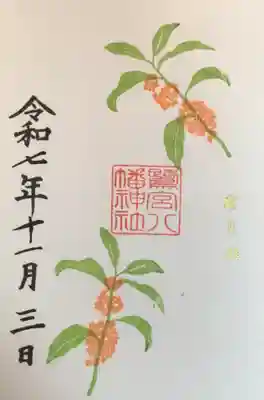 鷺宮八
幡神社
令和七年十一月三日